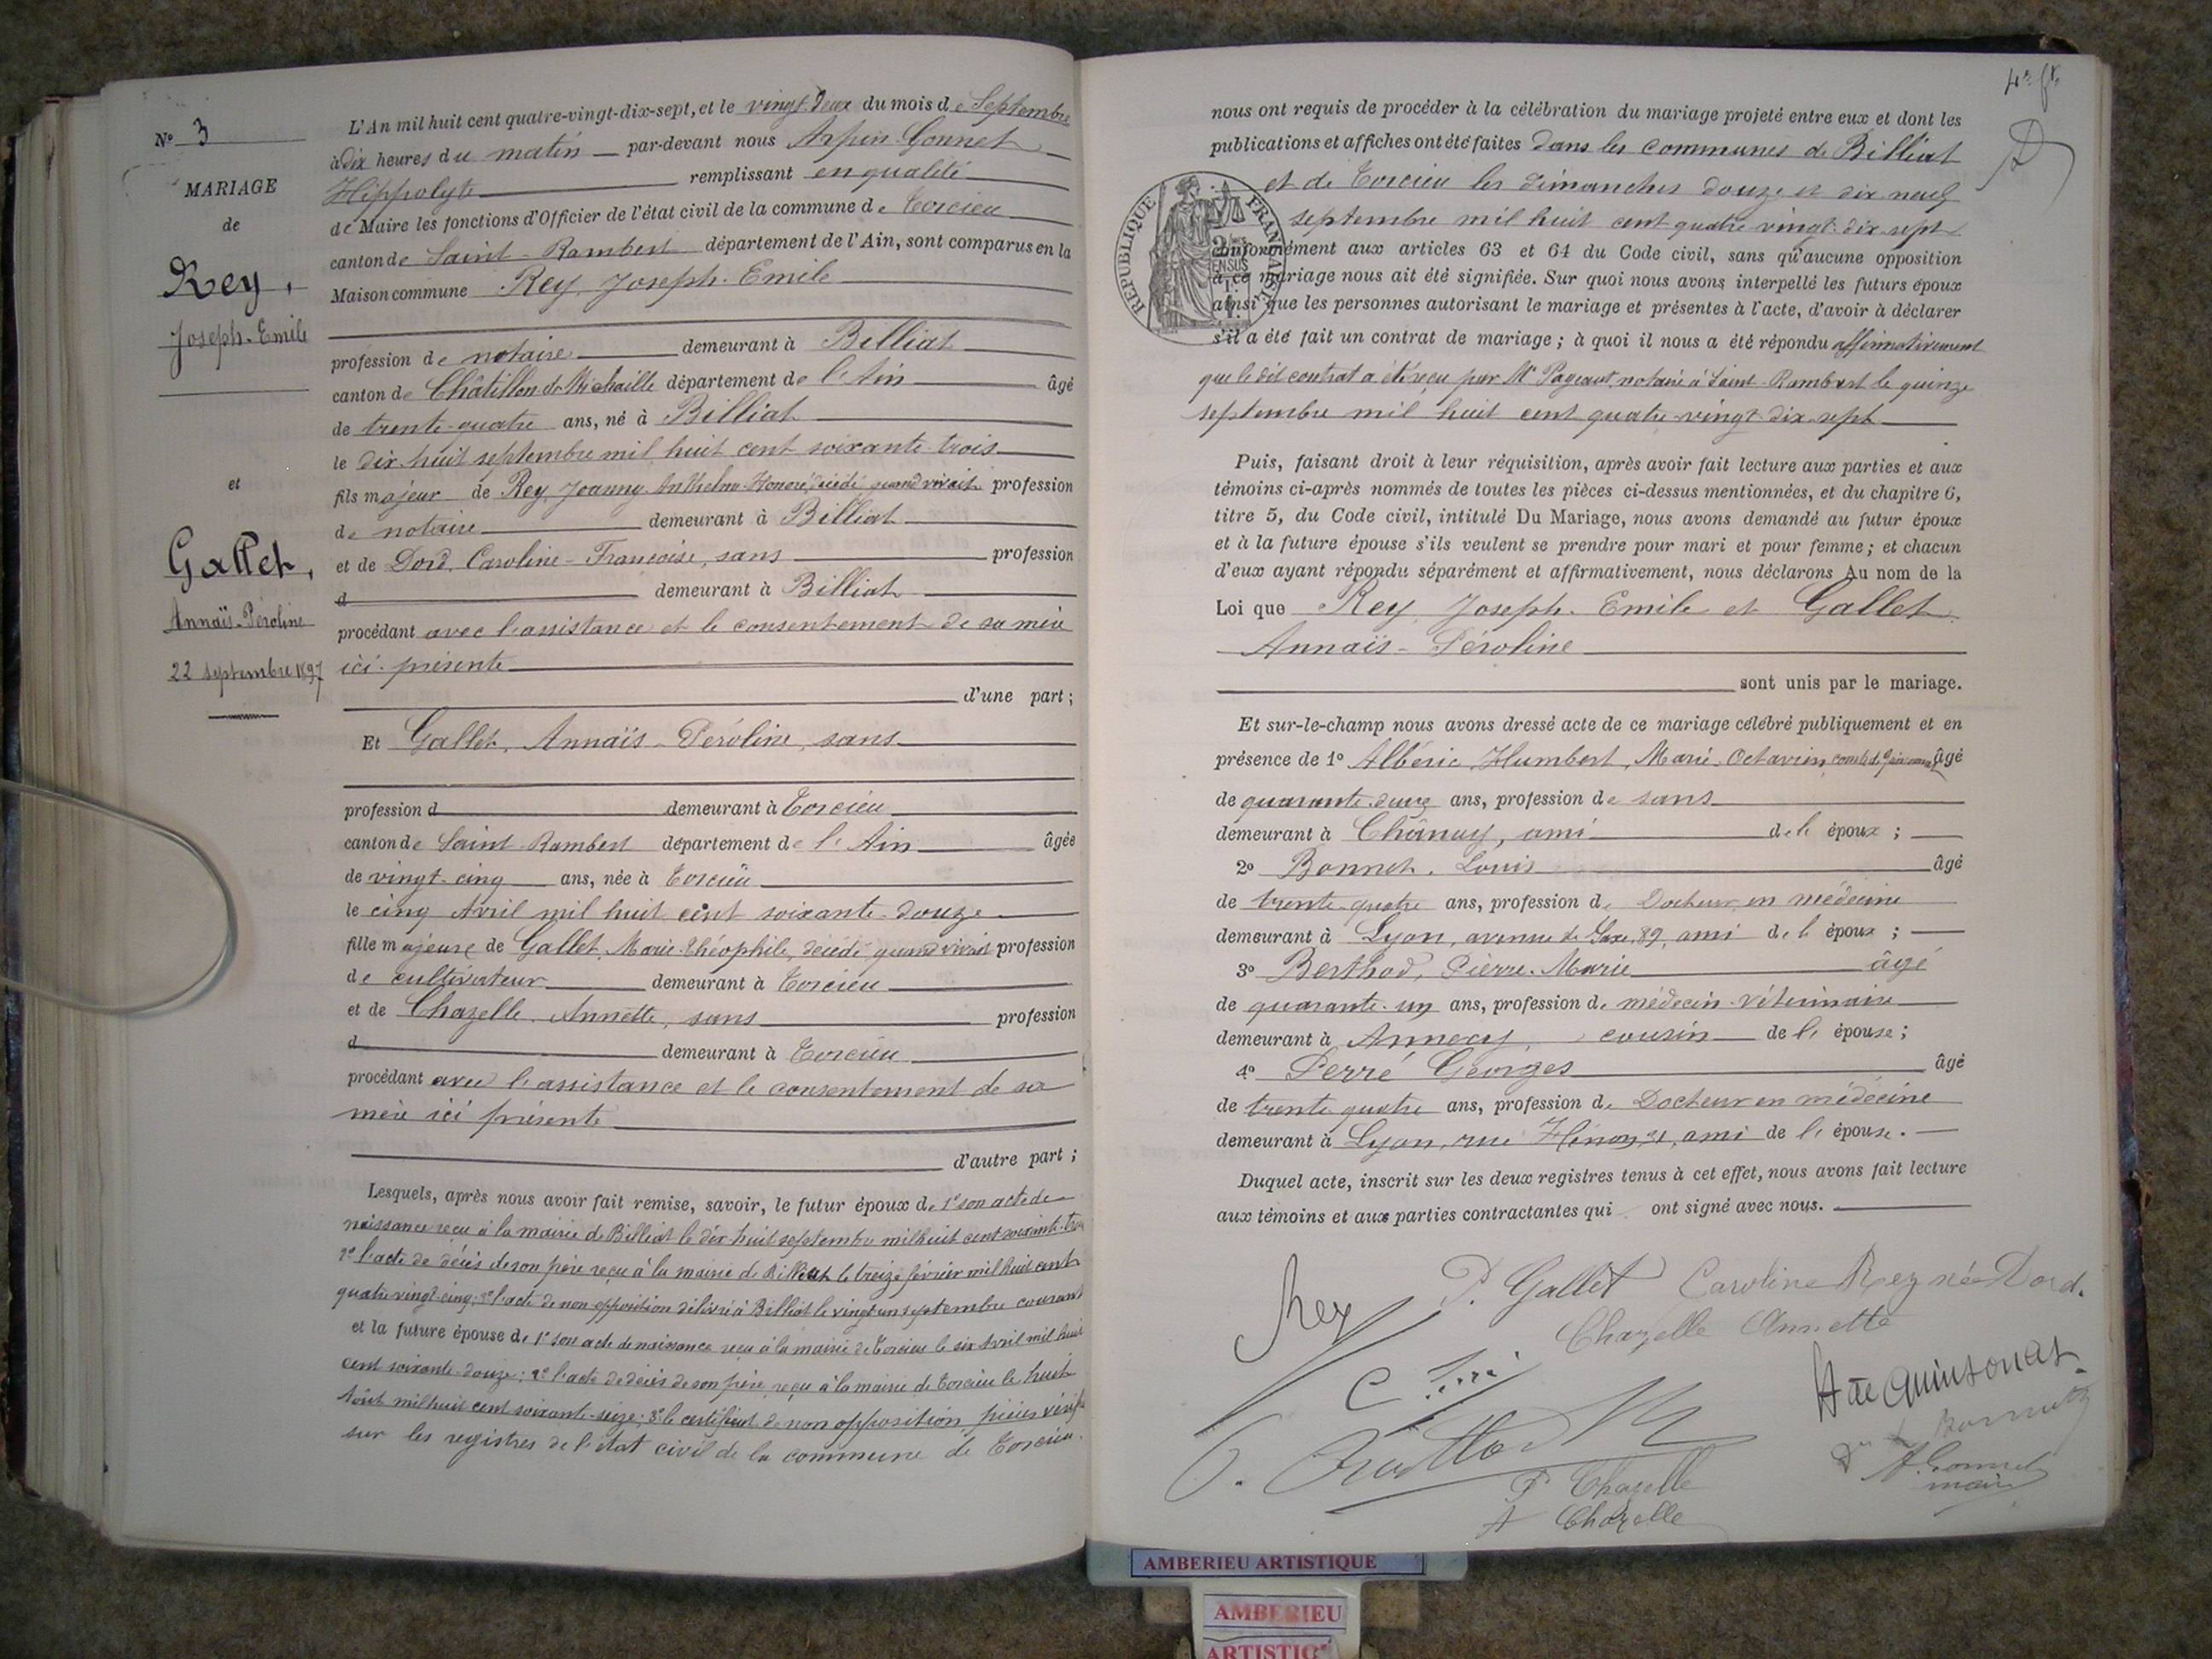 N° 3
MARIAGE
de
Rey,
Joseph-Emile
et
Gallet,
Annaïs-Péroline
22 septembre 1897
L'An mil huit cent quatre-vingt-dix-sept, et le vingt-deux du mois de Septembre
à dix heures du matin par-devant nous Arpin-Gonnet
Hippolyte remplissant en qualité
de Maire les fonctions d'Officier de l'état civil de la commune de Torcieu
canton de Saint-Rambert département de l'Ain, sont comparus en la
Maison commune Rey, Joseph-Emile
profession de notaire demeurant à Billiat
canton de Châtillon-de-Michaille département de l'Ain âgé
de trente-quatre ans, né à Billiat
le dix-huit septembre mil huit cent soixante-trois
fils majeur de Rey, Joanny-Anthelme-Honoré, décédé quand vivait profession
de notaire demeurant à Billiat
et de Dord, Caroline-Françoise, sans profession
d demeurant à Billiat
procédant avec l'assistance et le consentement de sa mère
ici présente
d'une part ;
Et Gallet, Annaïs-Péroline, sans
profession d demeurant à Torcieu
canton de Saint-Rambert département de l'Ain âgée
de vingt-cinq ans, née à Torcieu
le cinq Avril mil huit cent soixante-douze
fille majeure de Gallet, Marie-Théophile, décédé quand vivait profession
de cultivateur demeurant à Torcieu
et de Chazelle, Annette, sans profession
d demeurant à Torcieu
procédant avec l'assistance et le consentement de sa
mère ici présente
d'autre part ;
Lesquels, après nous avoir fait remise, savoir, le futur époux de 1° son acte de
naissance reçu à la mairie de Billiat le dix-huit septembre mil huit cent soixante-trois
2° l'acte de décès de son père reçu à la mairie de Billiat le treize février mil huit cent
quatre vingt-cinq; 3° l'acte de non opposition délivré à Billiat le vingt un septembre courant
et la future épouse de 1° son acte de naissance reçu à la mairie de Torcieu le six Avril mil huit
cent soixante-douze; 2° l'acte de décès de son père, reçu à la mairie de Torcieu le huit
Août mil huit cent soixante-seize; 3° le certificat de non opposition pièces
sur les registres de l'état civil de la commune de Torcieu.
4e ft.
nous ont requis de procéder à la célébration du mariage projeté entre eux et dont les
publications et affiches ont été faites dans les communes de Billiat
et de Torcieu les dimanches douze et dix neuf
septembre mil huit cent quatre vingt-dix-sept
conformément aux articles 63 et 64 du Code civil, sans qu'aucune opposition
à ce mariage nous ait été signifiée. Sur quoi nous avons interpellé les futurs époux
ainsi que les personnes autorisant le mariage et présentes à l'acte, d'avoir à déclarer
s'il a été fait un contrat de mariage ; à quoi il nous a été répondu affirmativement
que le dit contrat a été reçu par Me Pageaut, notaire à Saint-Rambert le quinze
septembre mil huit cent quatre-vingt-dix-sept
REPUBLIQUE FRANÇAISE
Puis, faisant droit à leur réquisition, après avoir fait lecture aux parties et aux
témoins ci-après nommés de toutes les pièces ci-dessus mentionnées, et du chapitre 6,
titre 5, du Code civil, intitulé Du Mariage, nous avons demandé au futur époux
et à la future épouse s'ils veulent se prendre pour mari et pour femme ; et chacun
d'eux ayant répondu séparément et affirmativement, nous déclarons Au nom de la
Loi que Rey, Joseph-Emile et Gallet
Annaïs-Péroline
sont unis par le mariage.
Et sur-le-champ nous avons dressé acte de ce mariage célébré publiquement et en
présence de 1° Albéric, Humbert, Marie, Octavien, comte de Quinsonas âgé
de quarante-deux ans, profession de sans
demeurant à Chânay, ami de l'époux ;
2° Bonnet, Louis âgé
de trente-quatre ans, profession de Docteur en médecine
demeurant à Lyon, avenue de Saxe, 89, ami de l'époux ;
3° Berthod, Pierre-Marie âgé
de quarante-un ans, profession de médecin-vétérinaire
demeurant à Annecy, cousin de l'épouse ;
4° Perré Georges âgé
de trente quatre ans, profession de Docteur en médecine
demeurant à Lyon, rue Hénon, 31, ami de l'épouse.
Duquel acte, inscrit sur les deux registres tenus à cet effet, nous avons fait lecture
aux témoins et aux parties contractantes qui ont signé avec nous.
Rey P. Gallet Caroline Rey née Dord.
Chazelle Annette
Quinsonas
Bonnet
Dr
H. Gonnet
maire
P Chazelle
A Chazelle
AMBERIEU ARTISTIQUE
AMBERIEU
ARTISTIQ